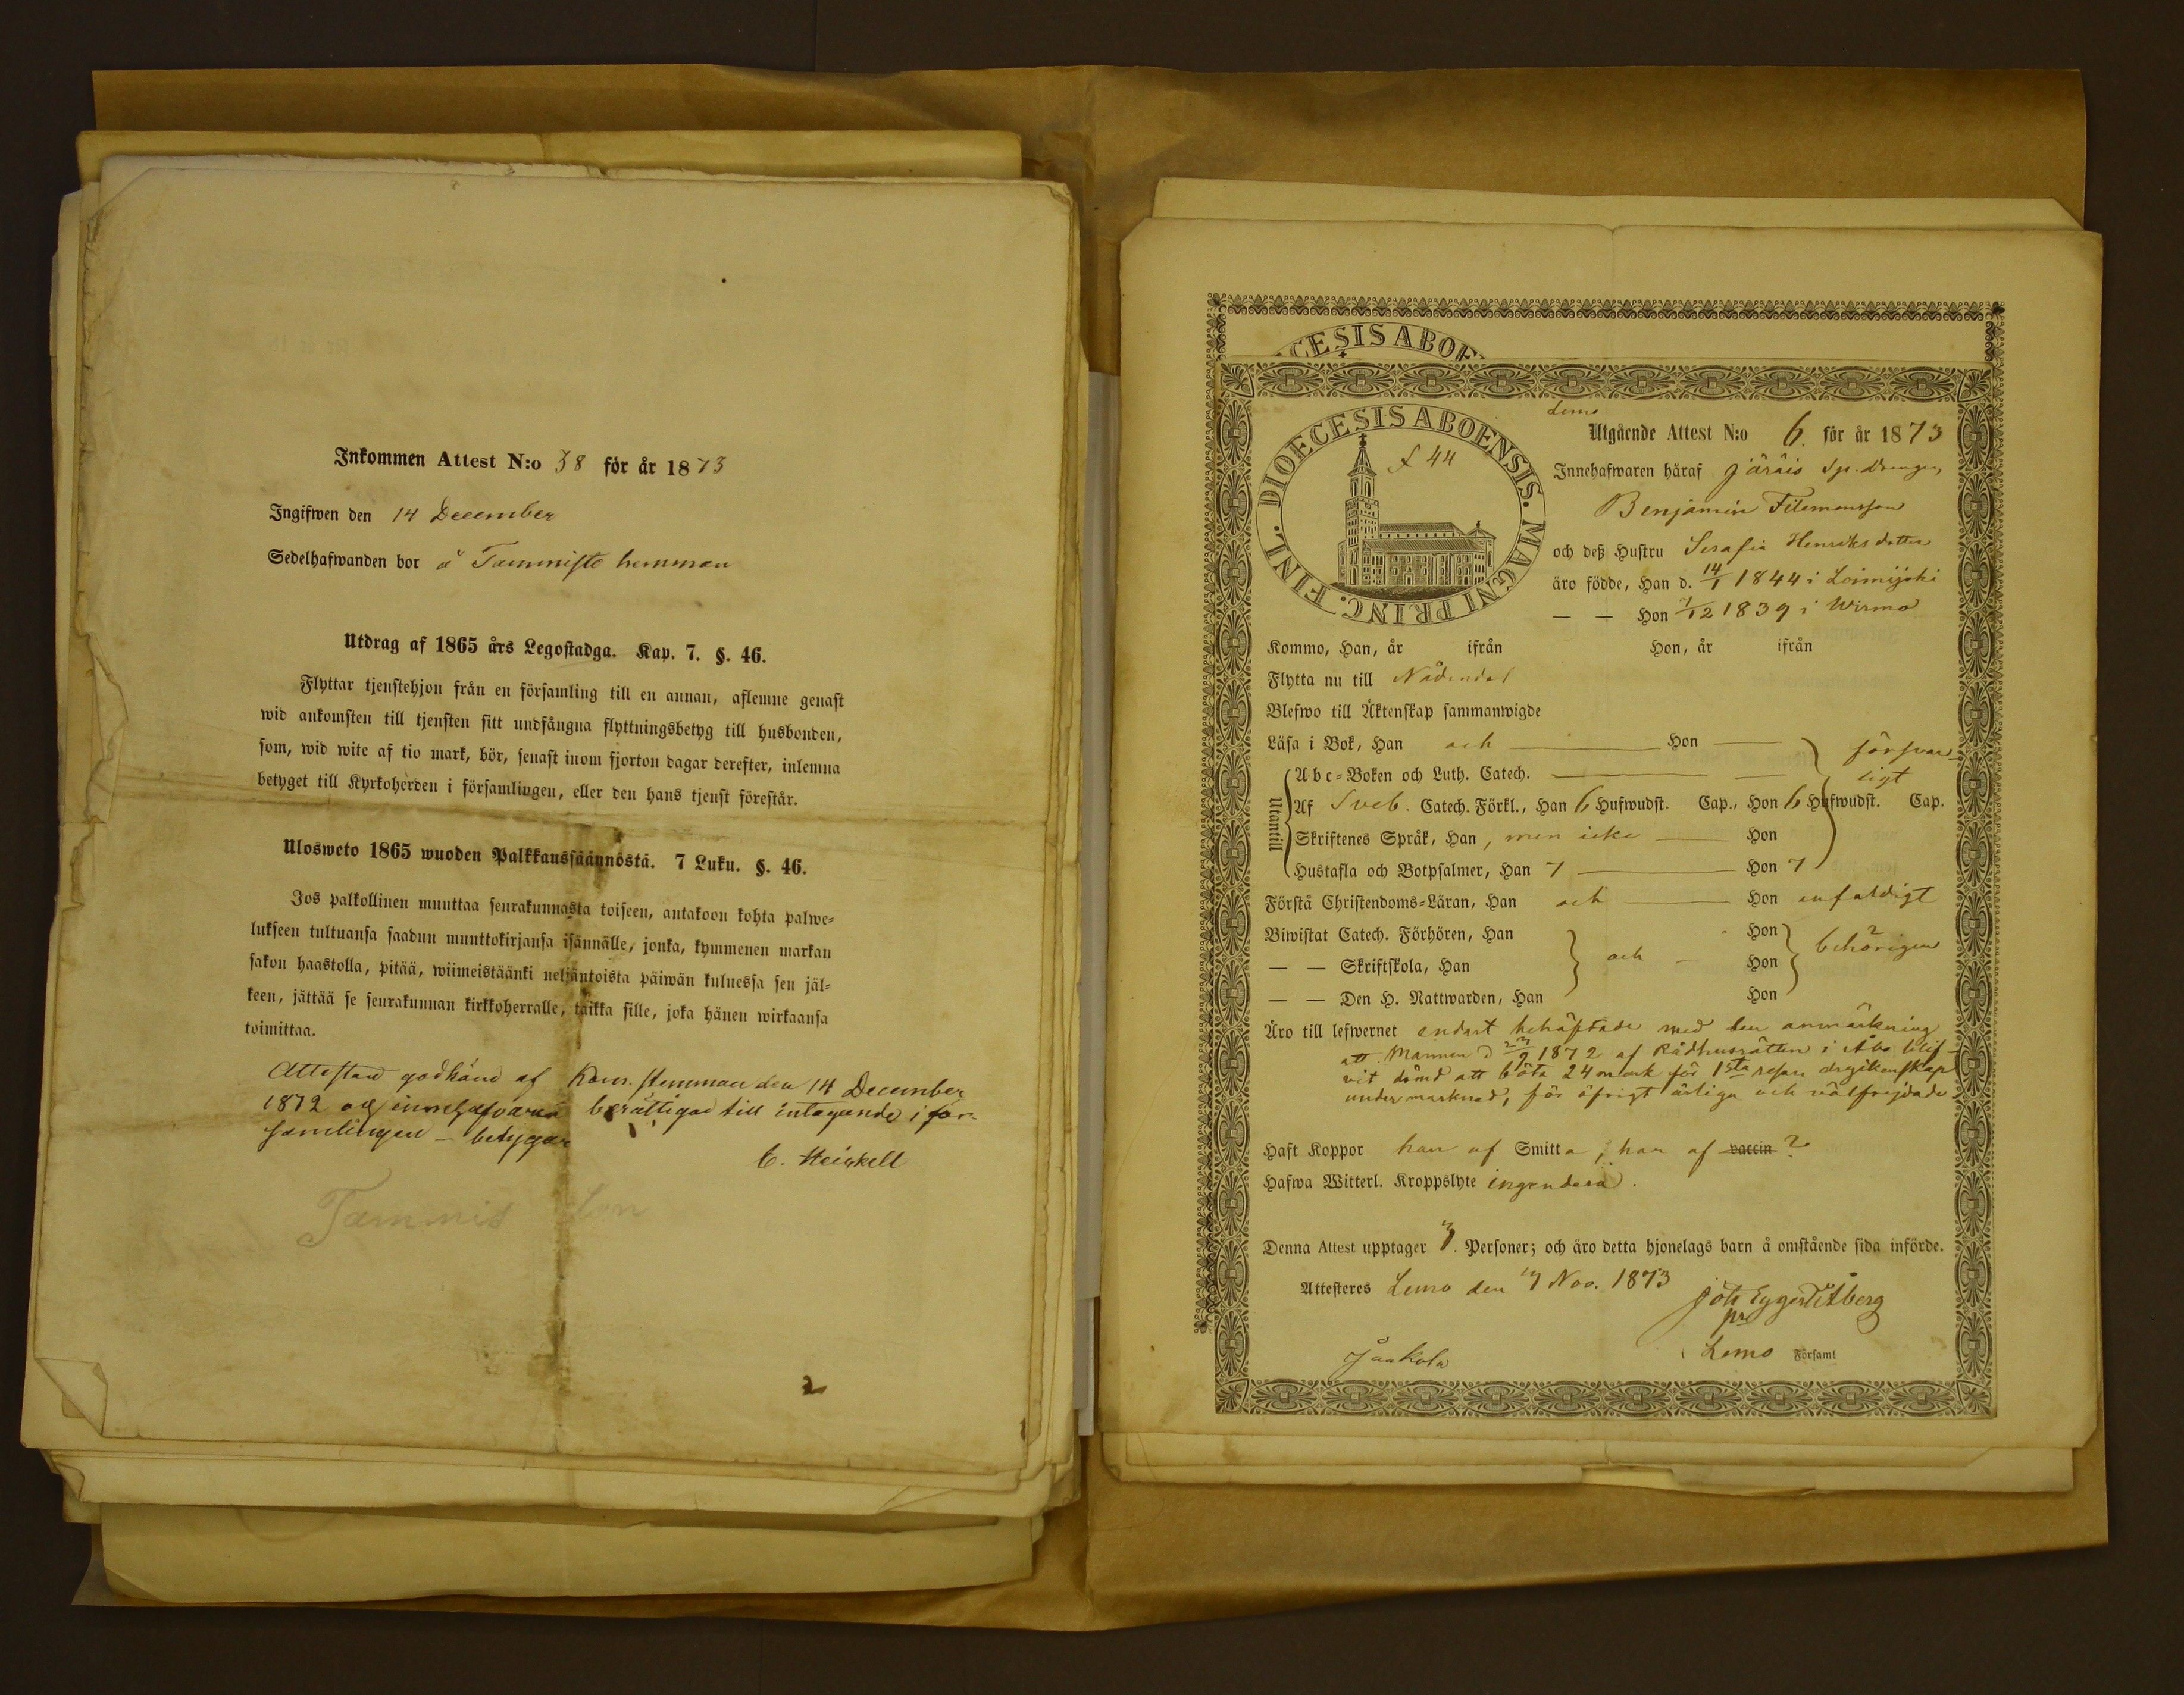 Inkommen Attest N:o 38 för år 1873
Ingifwen den 14 December
Sedelhafwanden bor å Tammisto hemman
Utdrag af 1865 års Legostadga. Kap. 7. §. 46.
Flyttar tjenstehjon från en församling till en annan, aflemne genast
wid ankomsten till tjensten sitt undfångna flyttningsbetyg till husbonden,
som, wid wite af tio mark, bör, senast inom fjorton dagar derefter, inlemna
betyget till Kyrkoherden i församlingen, eller den hans tjenst förestår.
Ulosweto 1865 wuoden Palkkaussäännöstä. 7 Luku. §. 46.
Jos palkollinen muuttaa seurakunnasta toiseen, antakoon kohta palwe=
lukseen tultuansa saadun muuttokirjansa isännälle, jonka, kymmenen markan
sakon haastolla, pitää, wiimeistäänki neljäntoista päiwän kuluessa sen jäl=
keen, jättää se seurakunnan kirkkoherralle, taikka sille, joka hänen wirkaansa
toimittaa.
Attesten godkänd af Kom. stemman den 14 December
1872 och innehafvarne berättigad till intagande i för-
samlingen - betygar
C. Heickell
Tammis
2
CESIS ABOE
DIOECESIS ABOENSIS. MAGNI PRINC. FINL.
f 44
Lemo
Utgående Attest N:o 6. för år 1873
Innehafwaren häraf Järäis Sp. drengen
Benjamin Filemonsson
och deß Hustru Serafia Henriksdotter
äro födde, Han d. 14/1 1844 i Loimijoki
— — Hon 7/12 1839 i Wirmo
Kommo, Han, år ifrån Hon, år ifrån
Flytta nu till Nådendal
Blefwo till Äktenskap sammanwigde
Läsa i Bok, Han och — Hon — försvar-
ligt
Utantill
Abc=Boken och Luth. Catech. — —
Af Sveb. Catech. Förkl., Han 6 Hufwudst. Cap., Hon 6 Hufwudst. Cap.
Skriftenes Språk, Han, men icke — Hon
Hustafla och Botpsalmer, Han 7 — Hon 7
Förstå Christendoms=Läran, Han och — Hon enfaldigt
Biwistat Catech. Förhören, Han Hon
— — Skriftskola, Han och — Hon behörigen
— — Den H. Nattwarden, Han Hon
Äro till lefwernet endast behäftade med den anmärkning
att Mannen d 23/9 1872 af Rådhusrätten i Åbo blif-
vit dömd att böta 24 mark för 1sta resan dryckenskap
under marknad, för öfrigt ärliga och välfrejdade.
Haft Koppor han af Smitta, hon af vaccin ?
Hafwa Witterl. Kroppslyte ingendera.
Denna Attest upptager 3. Personer; och äro detta hjonelags barn å omstående sida införde.
Attesteres Lemo den 17 Nov. 1873
Joh Eggert Åberg
Jaakola
i Lemo Församl